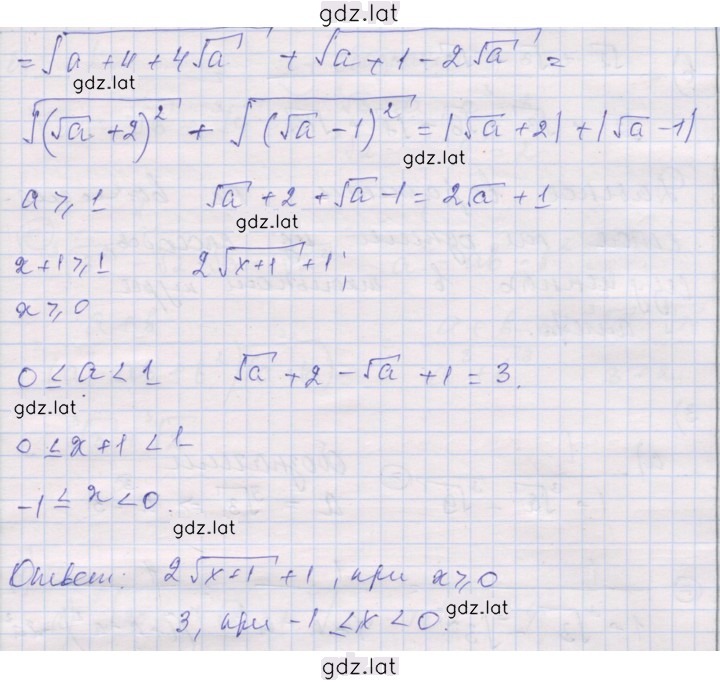 gdz.lat
= √(a + 4 + 4√a) + √(a + 1 - 2√a) =
gdz.lat
√((√a + 2)²) + √((√a - 1)²) = |√a + 2| + |√a - 1|
gdz.lat
a ⩾ 1 √a + 2 + √a - 1 = 2√a + 1
gdz.lat
x + 1 ⩾ 1 2√(x+1) + 1;
x ⩾ 0
0 ≤ a < 1 √a + 2 - √a + 1 = 3.
gdz.lat
0 ≤ x + 1 < 1
-1 ≤ x < 0.
gdz.lat
Ответ: 2√(x+1) + 1, при x ⩾ 0
gdz.lat
3, при -1 ≤ x < 0.
gdz.lat